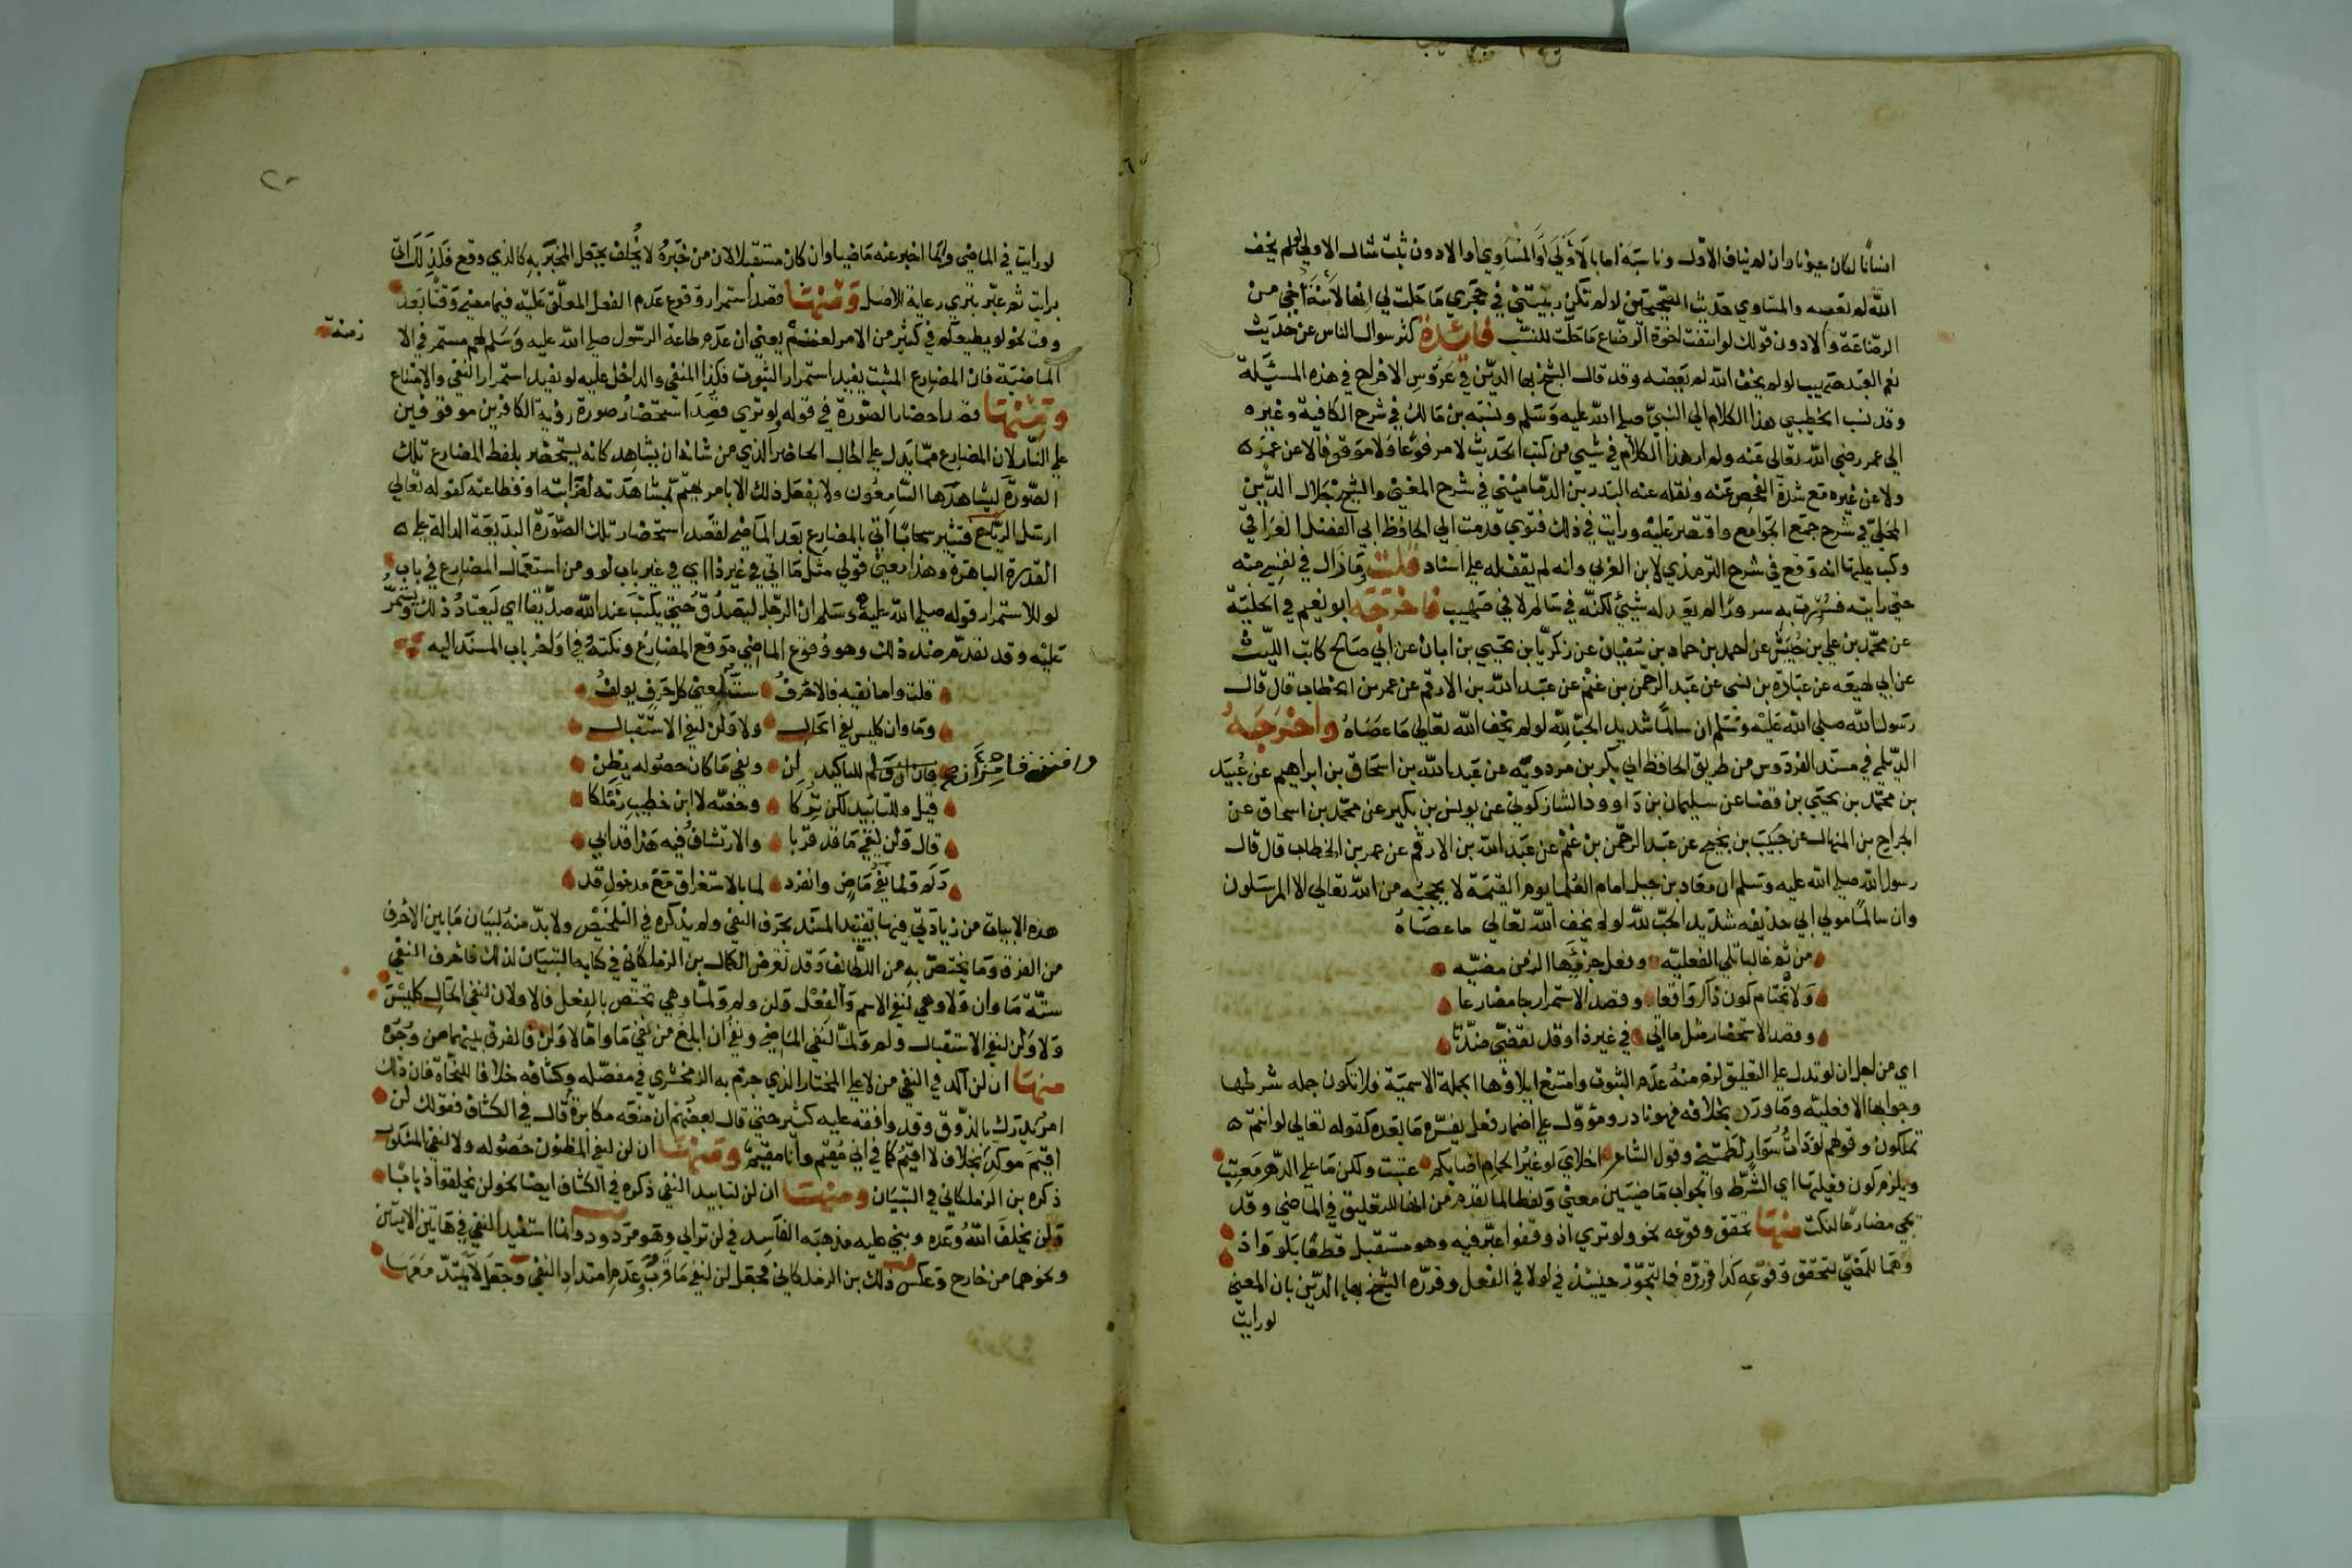 انسانًا لكان حيوانا وان لم يناف الاول وناسبه اما بالأولى او المساوي او الادون ثبت مثال الاولى لو لم يخف
الله لم يعصه والمساوي حديث الصحيحين لو لم تكن ربيبتي في حجري ما حلت لي انها لابنة اخي من
الرضاعة والادون قولك لو انتفت اخوة الرضاع ما حلت للنسب فائدة كثر سوال الناس عن حديث
نعم العبد صهيب لو لم يخف الله لم يعصه وقد قال الشيخ بهاء الدين في عروس الافراح في هذه المسئلة
وقد نسب الخطيبي هذا الكلام الي النبي صلي الله عليه وسلم ونسبه بن مالك في شرح الكافية وغيره
الي عمر رضي الله تعالى عنه ولم ار هذا الكلام في شيء من كتب الحديث لا مرفوعا ولا موقوفا لا عن عمر
ولا عن غيره مع شدة الفحص عنه ونقله عنه البدر بن الدماميني في شرح المغني والشيخ جلال الدين
المحلي في شرح جمع الجوامع واقتصر عليه ورايت في ذلك فتوي قدمت الي الحافظ ابي الفضل العراقي
وكتب عليها انه وقع في شرح الترمذي لابن العربي وانه لم يقف له علي اسناد قلت وما زال في نفسي منه
حتي رايته فسررت به سرورا لم يعد له شيئ لكنه في سالم لا في صهيب فاخرجه ابو نعيم في الحلية
عن محمد بن علي بن حبيش عن احمد بن حماد بن سفيان عن زكريا بن يحيي بن ابان عن ابي صالح كاتب الليث
عن ابي لهيعه عن عبادة بن نسى عن عبد الرحمن بن غنم عن عبد الله بن الارقم عن عمر بن الخطاب قال قال
رسول الله صلي الله عليه وسلم ان سالمًا شديد الحب لله لو لم يخف الله تعالي ما عصاه واخرجه
الديلمي في مسند الفردوس من طريق الحافظ ابي بكر بن مردويه عن عبد الله بن اسحاق بن ابراهيم عن عبيد
بن محمد بن يحيي بن قضا عن سليمان بن داوود الشاذكوني عن يونس بن بكير عن محمد بن اسحاق عن
الجراح بن المنهال عن حبيب بن نجيح عن عبد الرحمن بن غنم عن عبد الله بن الارقم عن عمر بن الخطاب قال قال
رسول الله صلي الله عليه وسلم ان معاذ بن جبل امام العلما يوم القيمة لا يحجبه من الله تعالي الا المرسلون
وان سالمًا مولي ابي حذيفه شديد الحب لله لو لم يخف الله تعالي ما عصاه
من ثم غالبا تلي الفعليه وفعل جزئيها الزمن مضيه
ولا تحتام كون ذاك واقعا وقصد الاستمرار جا مضارعا
وقصد الاستحضار مثل ما اتي في غير ذا وقد تقضي ضدتا
اي من اجل ان لو تدل علي التعليق لزم منه عدم الثبوت وامتنع ايلاؤها الجملة الاسمية فلا تكون جمله شرطها
وجوابها الا فعليه وما ورد بخلافه فهو نادر ومؤول علي اضمار فعل يفسره ما بعده كقوله تعالي لو انتم
تملكون وقولهم لو ذات سوار لطمتني وقول الشاعر اخلاي لو غير الحمام اصابكم عتبت ولكن ما علي الدهر معتب
ويلزم كون فعليها اي الشرط والجواب ماضيين معني ولفظا لما تقدم من انها للتعليق في الماضي وقد
يجي مضارعا لنكت منها تحقق وقوعه نحو ولو تري اذ وقفوا عبر فيه وهو مستقبل قطعًا بلو واذ
وهما للمضي لتحقق وقوعه كذا قرره فالتجوز حينئذ في لو لا في الفعل وقرره الشيخ بهاء الدين بان المعني
لو رايت
لو رايت في الماضي وانما اخبر عنه ماضيا وان كان مستقبلا لان من خبره لا يخلف يجعل المخبر به كالذي وقع فلذلك اتى
برايت ثم عبر بتري رعاية للاصل ومنها قصد استمرار وقوع عدم الفعل المعلق عليه فيما مضي وقتًا بعد
وقت نحو لو يطيعكم في كثير من الامر لعنتم يعني ان عدم طاعة الرسول صلي الله عليه وسلم لهم مستمر في الا
زمنة
الماضية فان المضارع المثبت يفيد استمرار الثبوت فكذا المنفي والداخل عليه لو يفيد استمرار النفي والامتناع
ومنها قصد احضار الصورة في قوله ولو تري قصدا استحضار صورة رؤية الكافرين موقوفين
علي النار لان المضارع مما يدل علي الحال الحاضر الذي من شانه ان يشاهد كانه يستحضر بلفظ المضارع تلك
الصورة ليشاهدها السامعون ولا يفعل ذلك الا بامر يهتم بمشاهدته لغرابته او فظاعته كقوله تعالي
ارسل الرياح فتثير سحابًا اتي بالمضارع بعد الماضي لقصد استحضار تلك الصورة البديعة الدالة علي
القدرة الباهرة وهذا معني قولي مثل ما اتي في غير ذا اي في غير باب لو ومن استعمال المضارع في باب
لو للاستمرار قوله صلي الله عليه وسلم ان الرجل ليصدق حتي يكتب عند الله صديقا اي ليعتاد ذلك ويستمر
عليه وقد تقدم ضد ذلك وهو وقوع الماضي موقع المضارع ونكتته في اواخر باب المسند اليه
قلت واما نفيه فالاحرف ستة لمعني كل حرف يولف
وما وان كليس نفي الحال ولا ولن لنفي الاستقبال
للتاكيد لن ونفي ما كان حصوله يظن
قيل وللتابيد لكن تركا وخصه لا ابن خطيب زملكا
قال ولن لنفي ما قد قربا والارتشاف فيه هذا قد ابي
ولم ولما نفي ماض وانفرد لما بالاستغراق مع مدخول قد
هذه الابيات من زيادتي فيها تقييد المسند بحرف النفي ولم يذكره في التلخيص ولا بد منه لبيان ما بين الاحرف
من الفرق وما يختص به من اللطائف وقد تعرض الكمال بن الزملكاني في كتابه التبيان لذلك فاحرف النفي
ستة ما وان ولا وهي لنفي الاسم والفعل ولن ولم ولما وهي تختص بالفعل فالاولان لنفي الحال كليس
ولا ولن لنفي الاستقبال ولم ولما لنفي الماضي ونفي ان ابلغ من نفي ما واما لا ولن فالفرق بينهما من وجوه
منها ان لن آكد في النفي من لا علي المختار الذي جزم به الزمخشري في مفصله وكشافه خلافا للنحاة فان ذلك
امر يدرك بالذوق وقد وافقه عليه كثير حتي قال بعضهم ان منعه مكابرة قال في الكشاف فقولك لن
اقيم موكد بخلاف لا اقيم كما في اني مقيم وانا مقيم ومنها ان لن لنفي المظنون حصوله ولا لنفي المشكوك
ذكره بن الزملكاني في التبيان ومنها ان لن لتابيد النفي ذكره في الكشاف ايضا نحو لن يخلقوا ذبابًا
ولن يخلف الله وعده وبني عليه مذهبه الفاسد في لن تراني وهو مردود وانما استفيد النفي في هاتين الايتين
ونحوهما من خارج وعكس ذلك بن الزملكاني فجعل لن لنفي ما قرب وعدم امتداد النفي وجعل لا يمتد معها